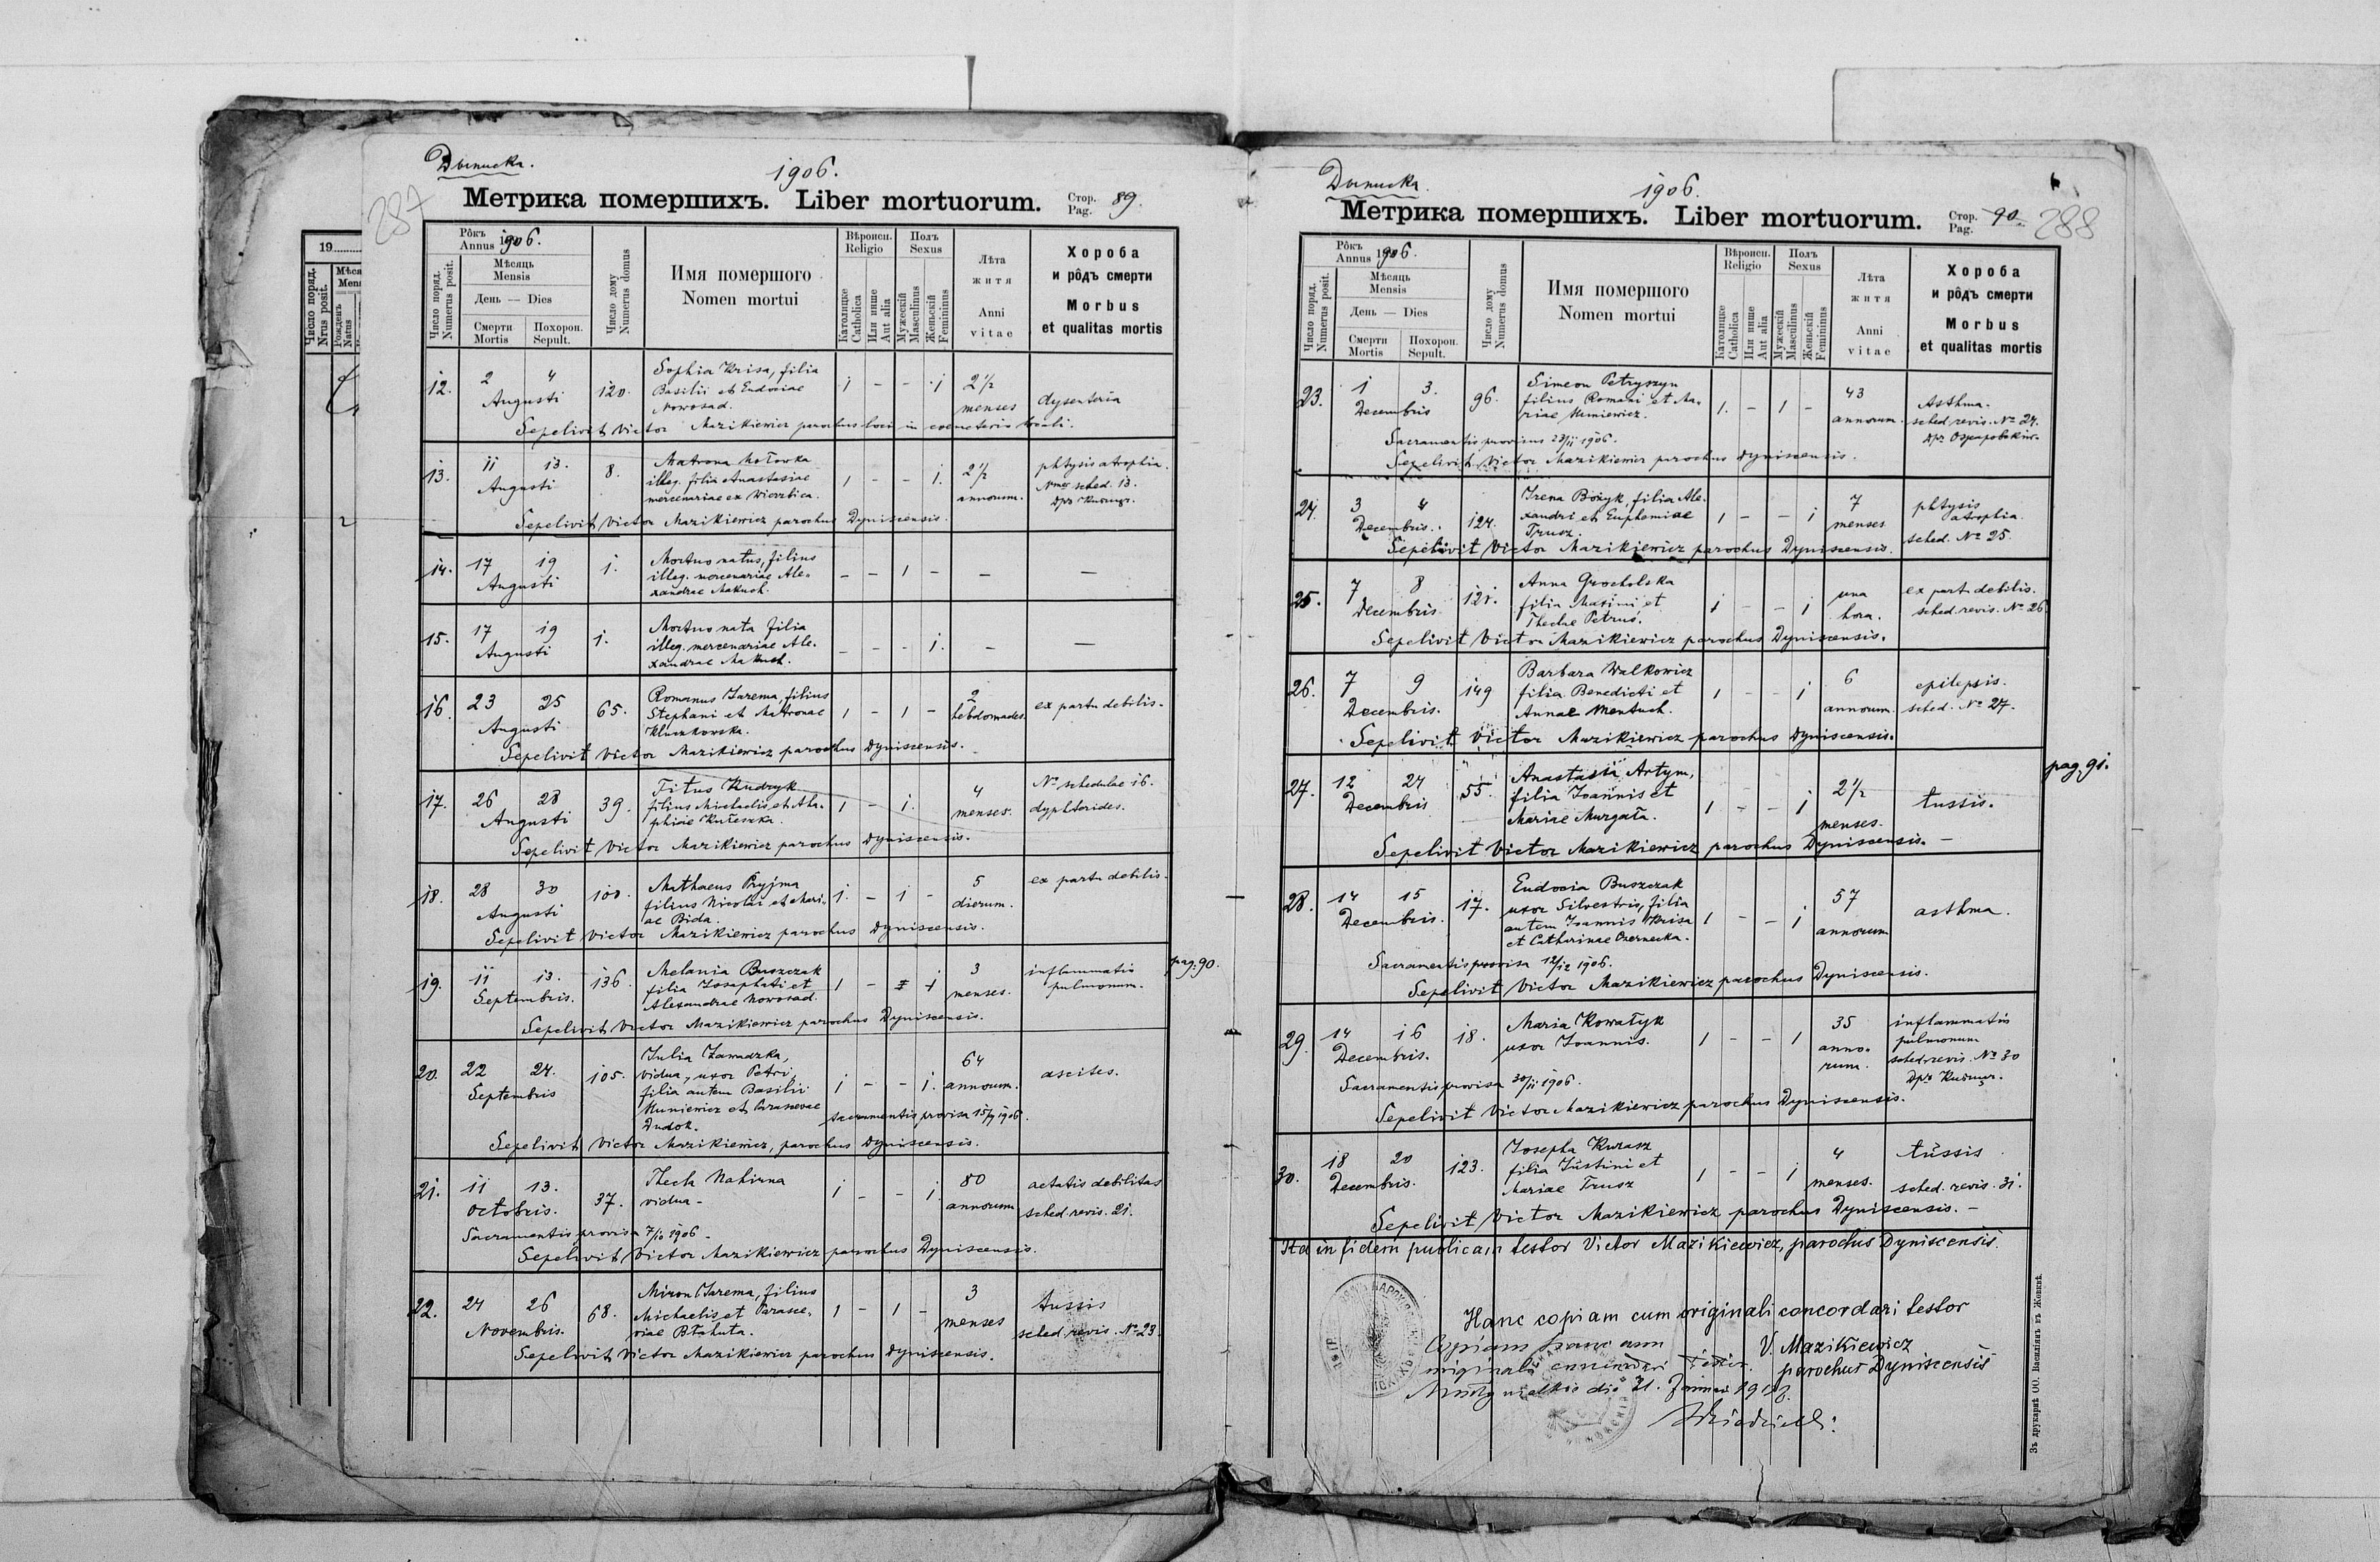 Дыниска.
1906.
287
Метрика помершихъ. Liber mortuorum. Стор. Pag. 89.
Рôкъ Annus 1906.
Мѣсяць Mensis
День — Dies
Число поряд. Numerus posit.
Смерти Mortis
Похорон. Sepult.
Число дому Numerus domus
Имя помершого Nomen mortui
Вѣроисп. Religio
Католицке Catholica
Или инше Aut alia
Полъ Sexus
Мужескій Masculinus
Женьскій Femininus
Лѣта житя Anni vitae
Хороба и рôдъ смерти Morbus et qualitas mortis
19
Число поряд. Nrus posit.
Рожденъ Natus
12. 2 4 Augusti 120. Sophia Krisa, filia
Basilii et Eudociae
Nowosad. 1 - - 1 2 1/2 menses dysenteria
Sepelivit Victor Mazikiewicz parochus loci in coemeterio locali.
13. 11 13. Augusti 8. Matrona Hołowka
illeg. filia Anastasiae
mercenariae ex Wierzbica. 1 - - 1. 2 1/2 annorum. phtysis atrophia.
Nrus sched. 13.
Sepelivit Victor Mazikiewicz parochus Dyniscensis.
14. 17 19 Augusti 1. Mortuo natus, filius
illeg. mercenariae Ale-
xandrae Makuch. - - 1 - - -
15. 17 19 Augusti 1. Mortuo nata filia
illeg. mercenariae Ale-
xandrae Makuch. - - - 1. - -
16. 23 25 Augusti 65. Romanus Jarema, filius
Stephani et Matronae
Kluczkowska. 1 - 1 - 2 hebdomades. ex partu debilis.
Sepelivit Victor Mazikiewicz parochus Dyniscensis.
17. 26 28 Augusti 39. Titus Kudryk
filius Michaelis et Aga-
phiae Kułeszka. 1 - 1. 4 menses. No schedulae 16.
dyphterides.
Sepelivit Victor Mazikiewicz parochus Dyniscensis.
18. 28 30 Augusti 100. Mathaeus Pryjma
filius Nicolai et Mari-
ae Bida. 1. - 1 - 5 dierum. ex partu debilis.
Sepelivit Victor Mazikiewicz parochus Dyniscensis.
19. 11 13. Septembris. 136. Melania Buszczak
filia Josaphati et
Alexandrae Nowosad. 1 - 1 3 menses. inflammatio
pulmonum.
pag. 90.
Sepelivit Victor Mazikiewicz parochus Dyniscensis.
20. 22 24. Septembris 105. Julia Zawadzka,
vidua, uxor Petri,
filia autem Basilii
Kuniewicz et Parascevae
Dudok. 1 - - 1. 64 annorum. ascites.
Sacramentis provisa 15/9 1906.
Sepelivit Victor Mazikiewicz, parochus Dyniscensis.
21. 11 13. Octobris. 37. Thecla Nahirna
vidua - 1 - - 1. 80 annorum aetatis debilitas
sched. revis. 21.
Sacramentis provisa 7/10 1906.
Sepelivit Victor Mazikiewicz parochus Dyniscensis.
22. 24 26 Novembris. 68. Miron Jarema, filius
Michaelis et Parasce-
viae Błahuta. 1 - 1 - 3 menses tussis
sched. revis. No 23.
Sepelivit Victor Mazikiewicz parochus Dyniscensis.
Дыниска.
1906.
288
Метрика помершихъ. Liber mortuorum. Стор. Pag. 90.
Рôкъ Annus 1906.
Мѣсяць Mensis
День — Dies
Число поряд. Numerus posit.
Смерти Mortis
Похорон. Sepult.
Число дому Numerus domus
Имя помершого Nomen mortui
Вѣроисп. Religio
Католицке Catholica
Или инше Aut alia
Полъ Sexus
Мужескій Masculinus
Женьскій Femininus
Лѣта житя Anni vitae
Хороба и рôдъ смерти Morbus et qualitas mortis
23. 1 3. Decembris 96. Simeon Petryszyn
filius Romani et Ma-
riae Kuniewicz. 1. - 1 - 43 annorum. Asthma.
sched. revis. No 24.
Sacramentis provisus 28/11 1906.
Sepelivit Victor Mazikiewicz parochus Dyniscensis.
24. 3 4 Decembris. 124. Irena Bożyk, filia Ale-
xandri et Euphemiae
Trusz. 1 - - 1 7 menses phtysis
atrophia.
sched. No 25.
Sepelivit Victor Mazikiewicz parochus Dyniscensis.
25. 7 8 Decembris 121. Anna Grocholska
filia Maximi et
Theclae Petrus. 1 - - 1 una hora. ex partu debilis.
sched. revis. No 26
Sepelivit Victor Mazikiewicz parochus Dyniscensis.
26. 7 9 Decembris. 149 Barbara Walkowicz
filia Benedicti et
Annae Mentuch. 1 - - 1 6 annorum. epilepsis.
sched. No 27.
Sepelivit Victor Mazikiewicz parochus Dyniscensis.
27. 12 24 Decembris 55. Anastasia Artym,
filia Joannis et
Mariae Murgała. 1 - - 1 2 1/2 menses. tussis.
pag. 91.
Sepelivit Victor Mazikiewicz parochus Dyniscensis. -
28. 14 15 Decembris. 17. Eudocia Buszczak
uxor Silvestris, filia
autem Joannis Krisa
et Catharinae Czernecka. 1 - - 1 57 annorum asthma.
Sacramentis provisa 12/12 1906.
Sepelivit Victor Mazikiewicz parochus Dyniscensis.
29. 14 16 Decembris. 18. Maria Kowałyk
uxor Joannis. 1 - - 1 35 anno-
rum. inflammatio
pulmonum
sched. revis. No 30
Sacramentis provisa 30/11 1906.
Sepelivit Victor Mazikiewicz parochus Dyniscensis.
30. 18 20 Decembris. 123. Josepha Kurasz
filia Justini et
Mariae Trusz 1 - - 1 4 menses. tussis
sched. revis. 31.
Sepelivit Victor Mazikiewicz parochus Dyniscensis. -
Ita in fidem publicam testor Victor Mazikiewicz, parochus Dyniscensis.
Hanc copiam cum originali concordari testor
V. Mazikiewicz
parochus Dyniscensis
Copiam hanc cum
originali
die 21.
Зъ друкарнѣ ОО. Василіянъ въ Жовквѣ.